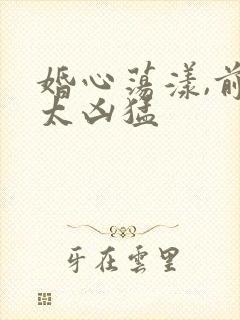 婚心荡漾,前
太凶猛
牙在雲里